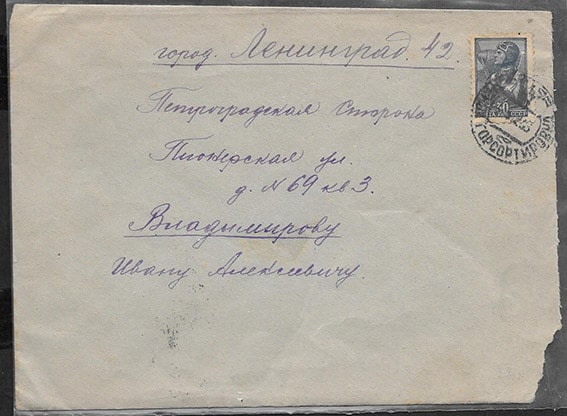 город. Ленинград. 42.
Петроградская Сторона
Пионерская ул.
д. N 69 кв 3.
Владимирову
Ивану Алексеевичу.
30
ГОРСОРТИРОВКА